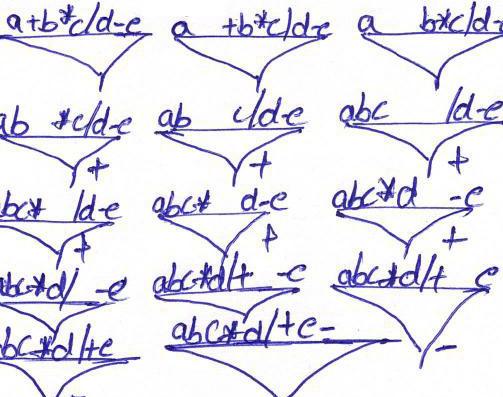 a+b*c/d-e a +b*c/d-e a b*c/d-
ab *c/d-e ab c/d-e abc /d-e
+ + +
bc* /d-e abc* d-e abc*d -e
+ + +
abc*d/ -e abc*d/+ -e abc*d/+ e
bc*d/+e abc*d/+e- -